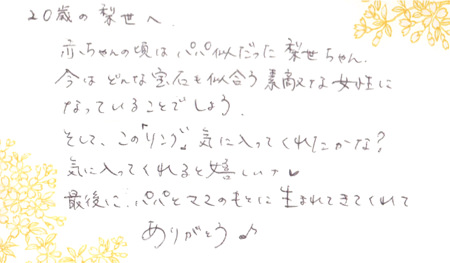 20歳の梨世へ.
赤ちゃんの頃はパパ似だった梨世ちゃん.
今はどんな宝石も似合う素敵な女性に
なっていることでしょう.
そして、この「リング」気に入ってくれたかな?
気に入ってくれると嬉しいナ♥
最後に.パパとママのもとに生まれてきてくれて
ありがとう♪